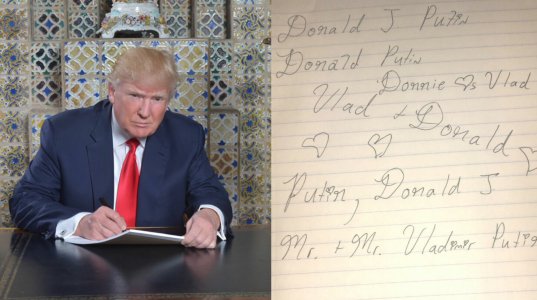 Donald J Putin
Donald Putin
Donnie ♡s Vlad
Vlad + Donald
Putin, Donald J
Mr. + Mr. Vladimir Putin